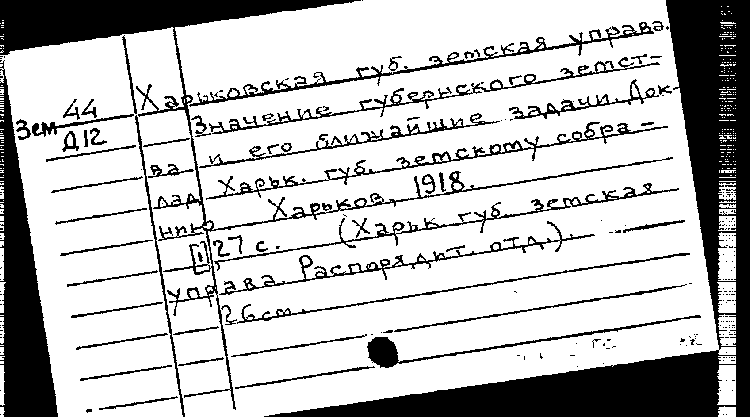 Харьковская губ. земская управа.
Зем 44
Д12
Значение губернского земст-
ва и его ближайшие задачи. Док-
лад Харьк. губ. земскому собра-
нию. Харьков, 1918.
[1], 27 с. (Харьк губ. земская
управа. Распорядит. отд.).
26 см.